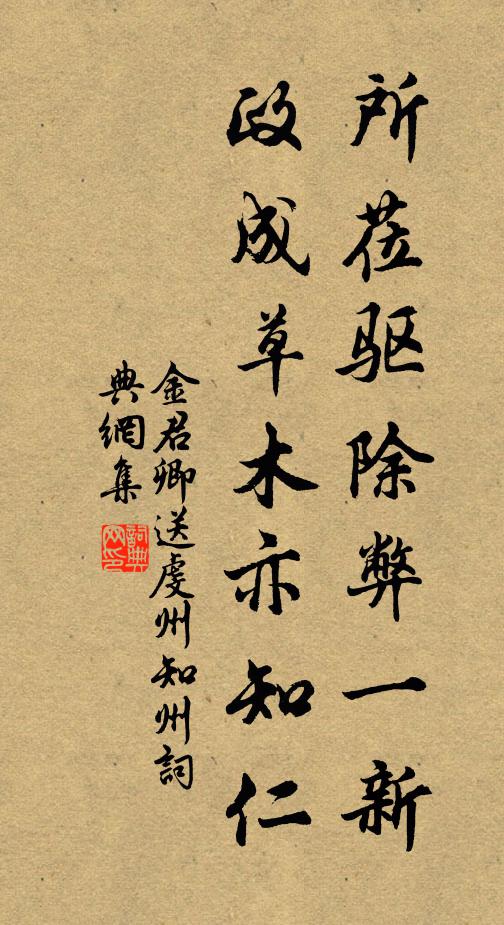 所莅驱除弊一新
政成草木亦知仁
金君卿送虔州知州詞
典網集
詞典网印